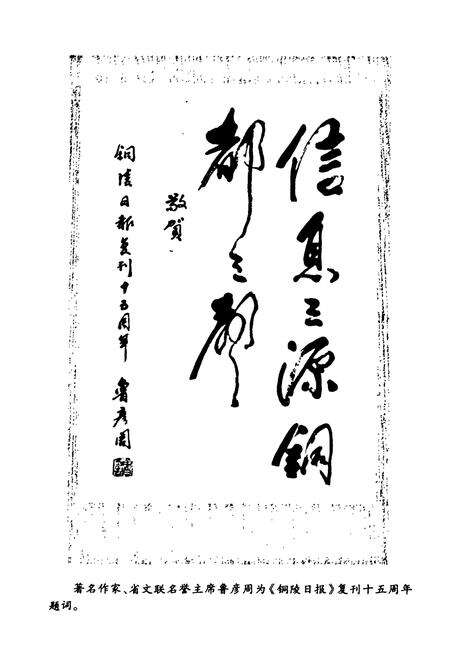 信息之源銅
都之聲
敬賀
銅陵日报复刊十五周年 魯彦周
著名作家、省文联名誉主席鲁彦周为《铜陵日报》复刊十五周年
题词。